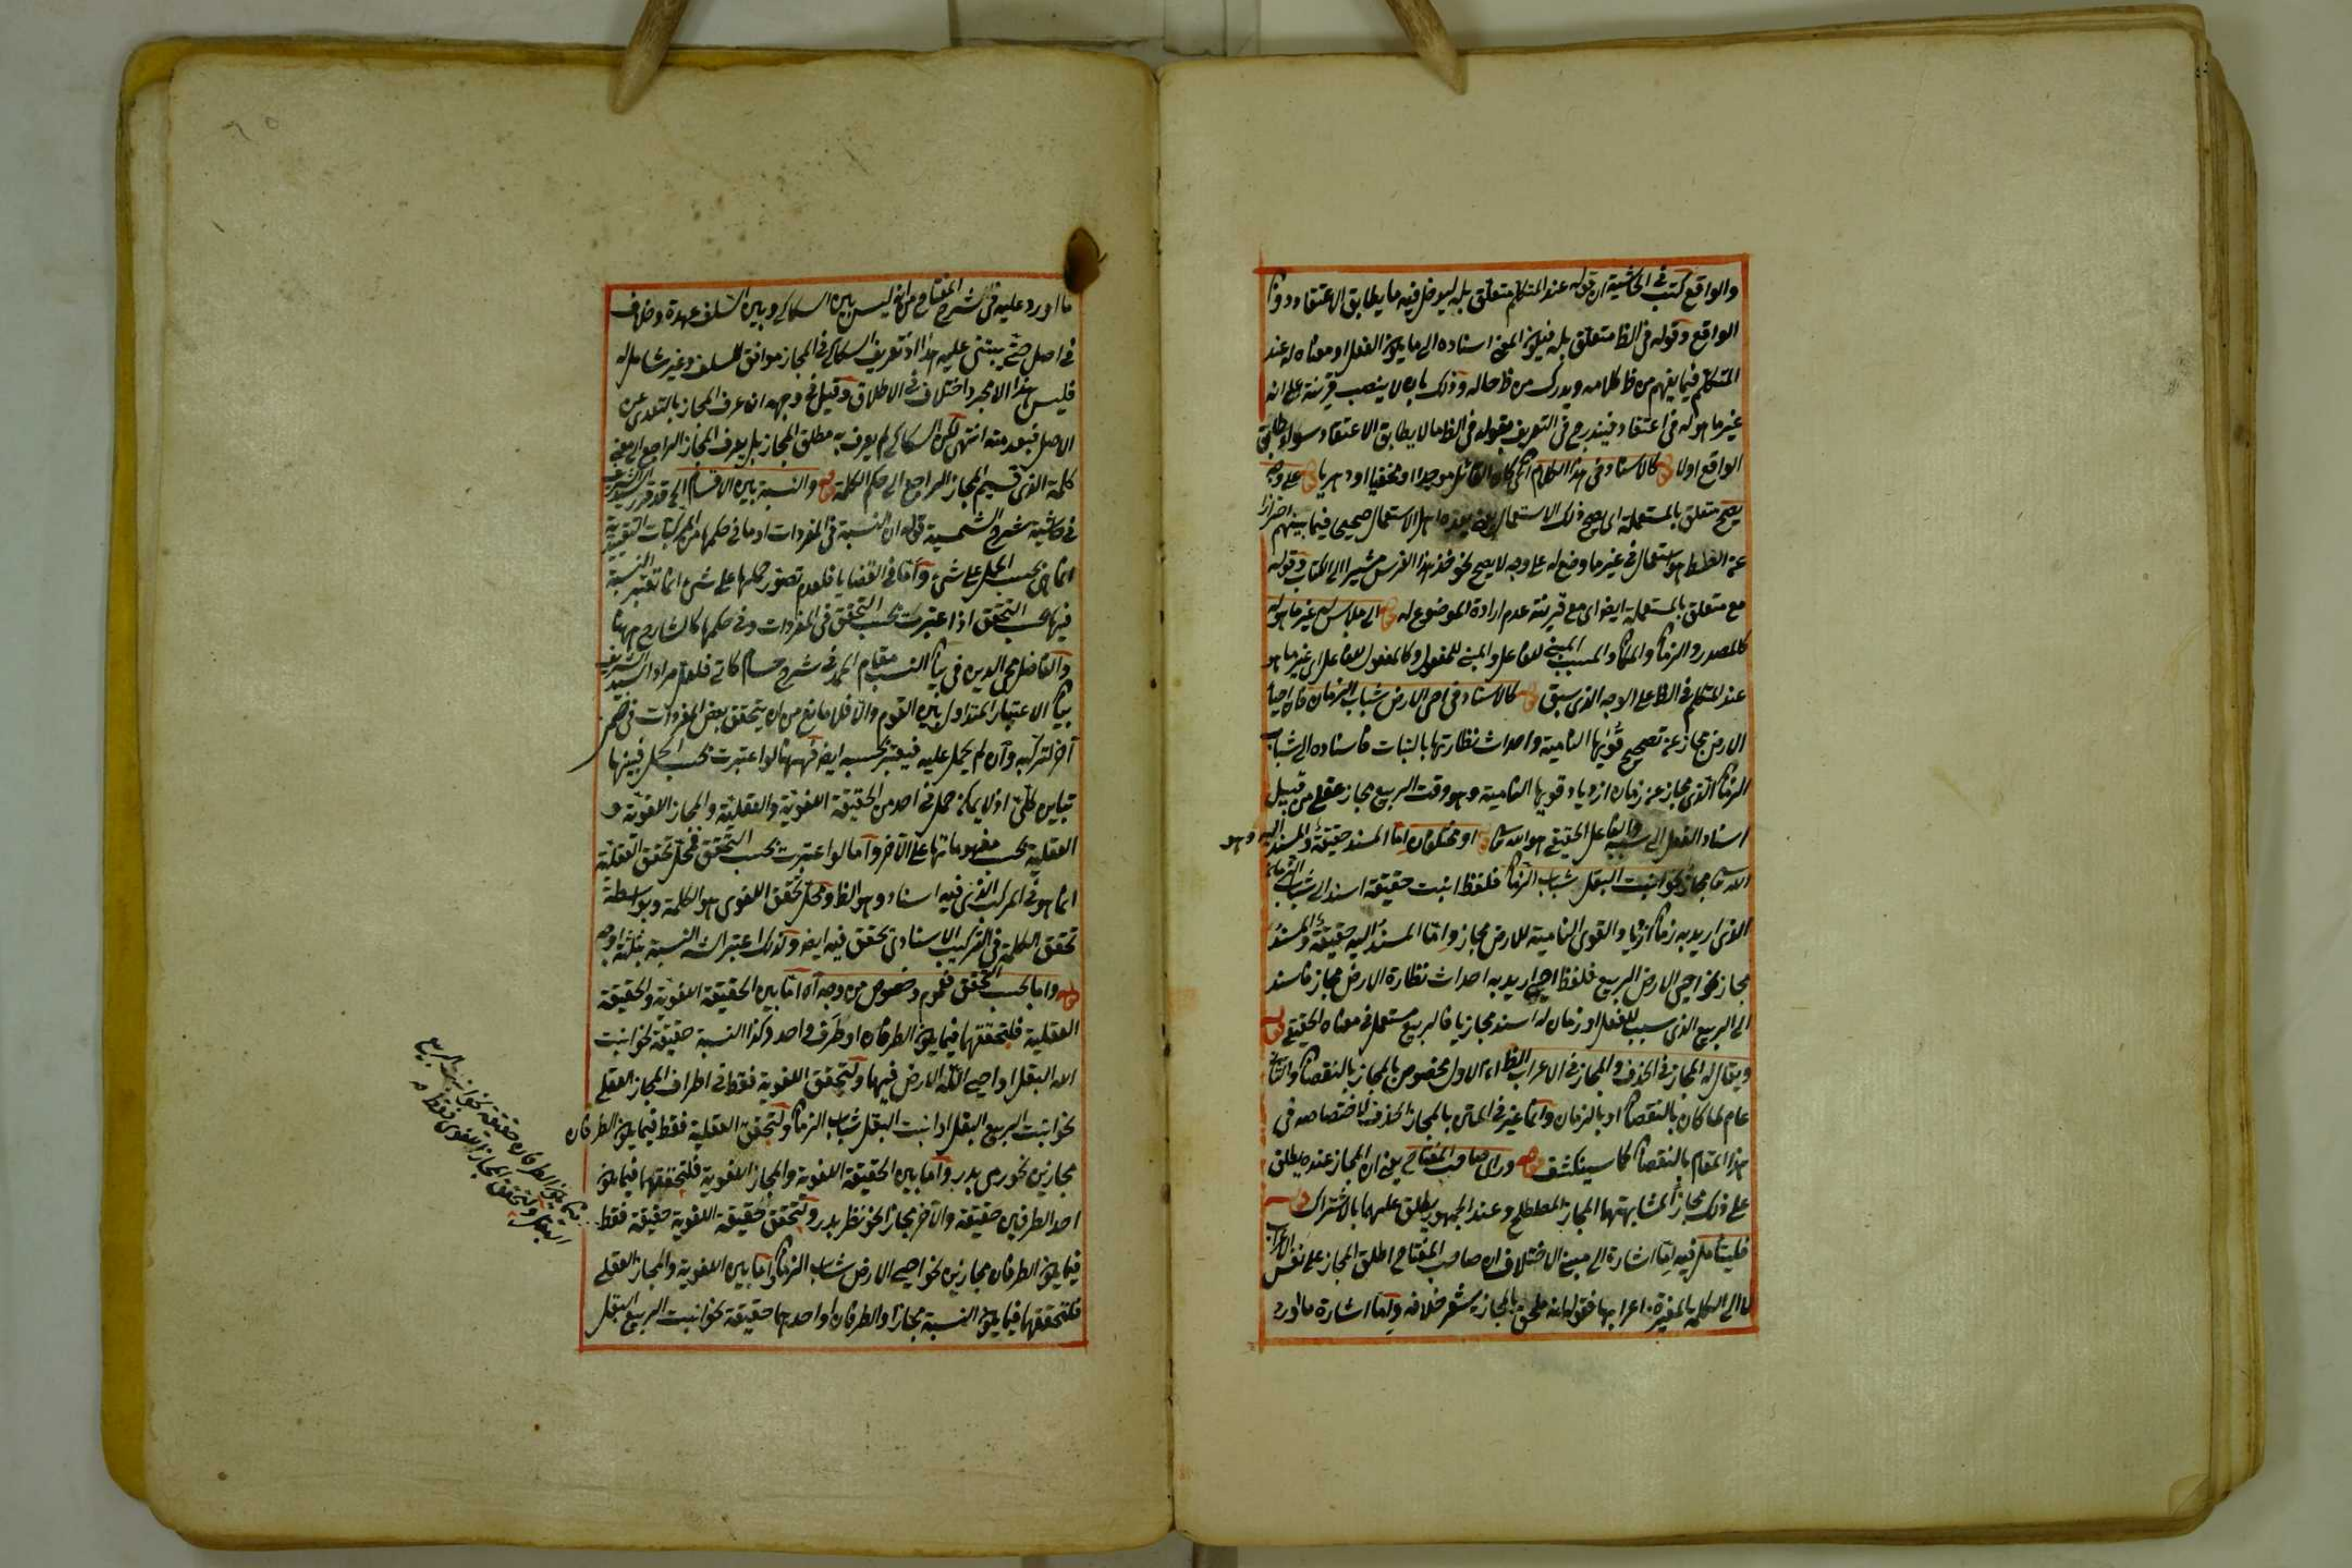 والواقع كتب في الحاشية ان قوله عند المتكلم متعلق بله ليدخل فيه ما يطابق الاعتقاد دون
الواقع وقوله في الظ متعلق بله فيكون المعنى اسناده الى ما يكون الفعل او معناه له عند
المتكلم فيما يفهم من ظ كلامه ويدرك من ظ حاله وذلك بان لا ينصب قرينة على انه
غير ما هو له في اعتقاده فيندرج في التعريف بقوله في الظ ما لا يطابق الاعتقاد سواء طابق
الواقع اولا قوله كالاسناد في هذا الكلام ان كان القائل موحدا او مخفيا او دهريا قوله على وجه
يصح متعلق بالمستعملة اي يصح ذلك الاستعمال بان الاستعمال صحيح فيما بينهم احترازا
عن الغلط استعمال في غير ما وضع له على وجه لا يصح نحو خذ هذا الفرس مشيرا الى كتاب وقوله
مع متعلق بالمستعملة ايضا اي مع قرينة عدم ارادة الموضوع له قوله الى ملابس غير ما هو له
كالمصدر والزمان والمكان والمسبب المبني للفاعل والمبني للمفعول وكالمفعول للفاعل اي غير ما هو
عند المتكلم في الظ على الوجه الذي سبق قوله كالاسناد في احيى الارض شباب الزمان فان احياء
الارض مجاز عن تصحيح قويها النامية واحداث نظارتها بالنبات فاسناده الى شباب
الزمان الذي مجاز عن زمان ازدياد قويها النامية وهو وقت الربيع مجاز عقلي من قبيل
اسناد الفعل الى سببه والفاعل الحقيقي هو الله تعالى قوله او مختلفان اما المسند حقيقة والمسند اليه وهو
مجاز نحو انبت البقل شباب الزمان فلفظ انبت حقيقة اسند الى شباب الزمان
الذي اريد به زمان ازدياد القوى النامية للارض مجاز واما المسند اليه حقيقة والمسند
مجاز نحو احيى الارض الربيع فلفظ احيى اريد به احداث نظارة الارض مجاز فاسند
الى الربيع الذي سبب للفعل او زمان له اسند مجازيا فالربيع مستعمل في معناه الحقيقي قوله
ويقال له المجاز في الحذف والمجاز في الاعراب الظ ان الاول مخصوص بالمجاز بالنقصان والثاني
عام لما كان بالنقصان او بالزمان وانما غير في المتن بالمجاز الحذف لاختصاصه في
هذا المقام بالنقصان كما سينكشف قوله وراى صاحب المفتاح يعني ان المجاز عنده يطلق
على ذلك مجازا لمشابهتهما المجاز المصطلح وعند الجمهور يطلق عليهما بالاشتراك قوله
فليتأمل فيه اما اشارة الى مبنى الاختلاف ان صاحب المفتاح اطلق المجاز على نفس الاعراب
لا الى الكلمة المغيرة اعرابها فقوله انه ملحق بالمجاز يشعر خلافه واما اشارة ما اورد
ما اورد عليه في شرح المفتاح من انه ليس بين السكاكي وبين السلف عهدة وخلاف
في اصل حتى يبتنى عليه هذا اذ تعريف السكاكي في المجاز موافق للسلف وغير شامل له
فليس هذا الا مجرد اختلاف في الاطلاق وقيل في وجهه انه عرف المجاز بالتعدي عن
الاصل فبعد منه انتهى لكن السكاكي لم يعرف به مطلق المجاز بل يعرف المجاز الراجع الى معنى
كلمة الذي قسيم المجاز الراجع الى حكم الكلمة قوله والنسبة بين الاقسام الخ قد قرر السيد الشريف
في حاشية شرح الشمسية قوله ان النسبة في المفردات او ما في حكمها من المركبات التقييدية
انما هي بحسب الحمل على شيء واما في القضايا فلعدم تصور حملها على شيء انما تعتبر النسبة
فيها بحسب التحقق اذا اعتبرت بحسب التحقق في المفردات وفي حكمها كالشارح ههنا
والفاضل محي الدين في بيان النسب مقام الحمد في شرح حسام كاتي فلعل مراد السيد الشريف
بيان الاعتبار المتداول بين القوم والا فلا مانع من ان يتحقق بعض المفردات في ضمن
آخر لتركبه وان لم يحمل عليه فيعتبر بحسبه ايضا فههنا لو اعتبرت بحسب الحمل فبينها
تباين كلي اذ لا يمكن حمل شيء احد من الحقيقة اللغوية والعقلية والمجاز اللغوية و
العقلية بحسب مفهوماتها على الآخر واما لو اعتبرت بحسب التحقق فمحل تحقق العقلية
انما هو في المركب الذي فيه اسناد وهو الظ ومحل تحقق اللغوي هو الكلمة وبواسطة
تحقق الكلمة في التركيب الاسنادي تحقق فيه ايضا وكذلك اعتبرات النسبة بثلثة اوجه
قوله واما بحسب التحقق فعموم وخصوص من وجه اه اما بين الحقيقة اللغوية والحقيقة
العقلية فلتحققهما فيما يكون الطرفان او طرف واحد وكذا النسبة حقيقة نحو انبت
الله البقل او احيى الله الارض فيها ولتحقق اللغوية فقط في اطراف المجاز العقلي
نحو انبت الربيع البقل او انبت البقل شباب الزمان ولتحقق العقلية فقط فيما يكون الطرفان
مجازين نحو رمى بدر واما بين الحقيقة اللغوية والمجاز اللغوية فلتحققهما فيما يكون
احد الطرفين حقيقة والآخر مجازا نحو نظر بدر ولتحقق حقيقة اللغوية حقيقة فقط
فيما يكون الطرفان مجازين نحو احيى الارض شباب الزمان واما بين اللغوية والمجاز العقلي
فلتحققهما فيما يكون النسبة مجازا والطرفان او احدهما حقيقة نحو انبت الربيع البقل
يكون الطرفان حقيقة نحو انبت الربيع
البقل ولتحقق المجاز اللغوي فقط